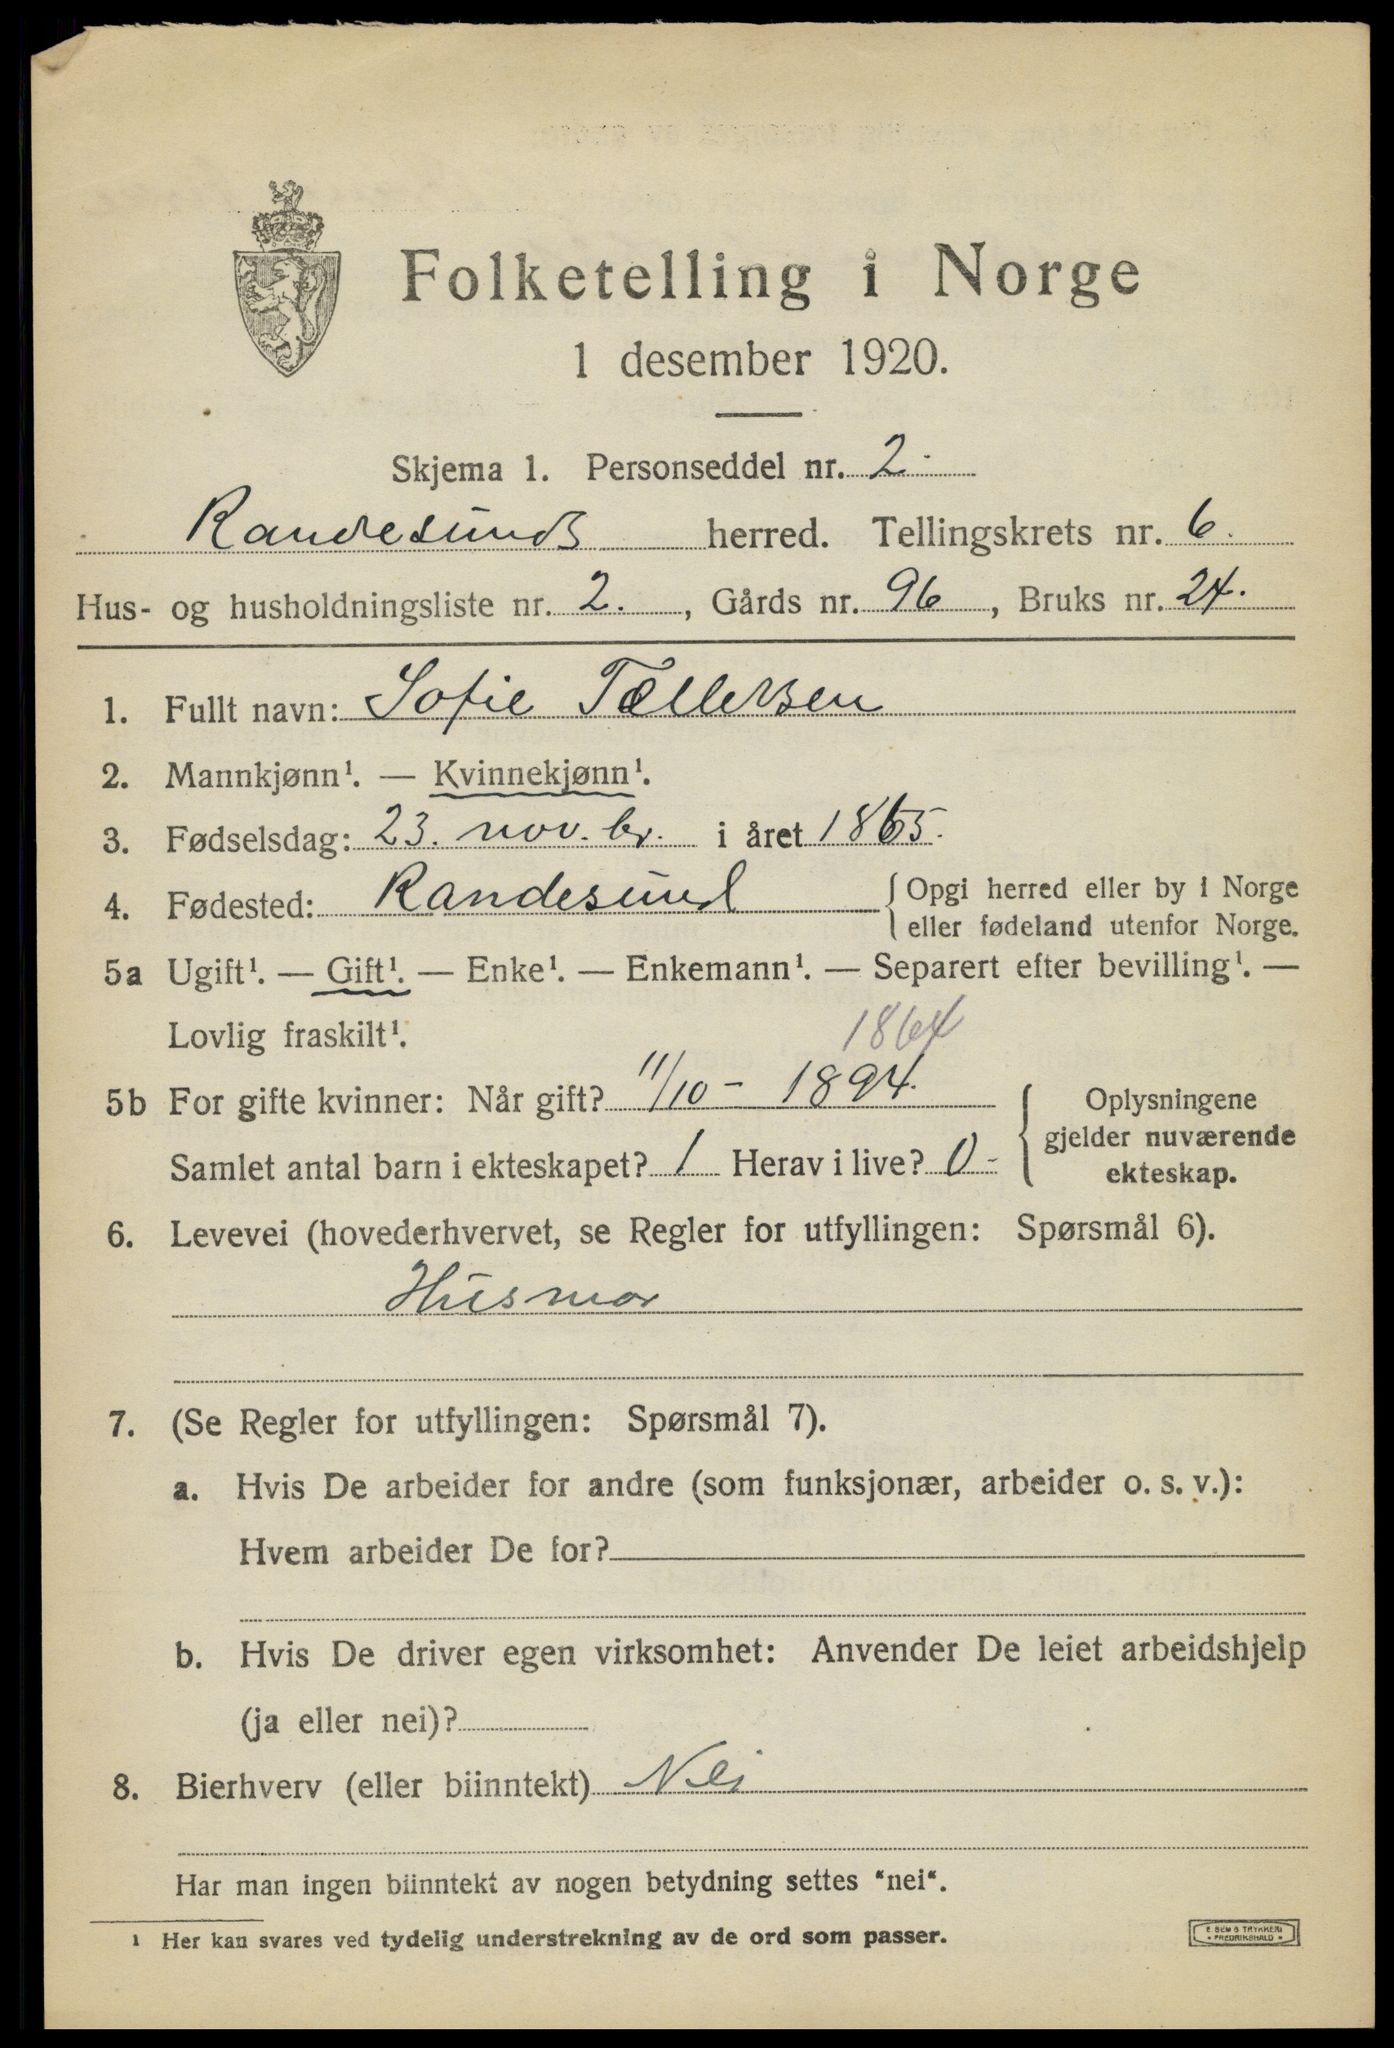 Folketelling i Norge
1 desember 1920.
Skjema 1. Personseddel nr. 2.
Randesunds herred. Tellingskrets nr. 6.
Hus- og husholdningsliste nr. 2., Gårds nr. 96, Bruks nr. 24.
1. Fullt navn: Sofie Tellefsen
2. Mannkjønn¹. — Kvinnekjønn¹.
3. Fødselsdag: 23. nov.br. i året 1865.
4. Fødested: Randesund { Opgi herred eller by i Norge
eller fødeland utenfor Norge.
5a Ugift¹. — Gift¹. — Enke¹. — Enkemann¹. — Separert efter bevilling¹. —
Lovlig fraskilt¹.
1864
5b For gifte kvinner: Når gift? 11/10 - 1894. { Oplysningene
gjelder nuværende
Samlet antal barn i ekteskapet? 1 Herav i live? 0-
ekteskap.
6. Levevei (hovederhvervet, se Regler for utfyllingen: Spørsmål 6).
Husmor
7. (Se Regler for utfyllingen: Spørsmål 7).
a. Hvis De arbeider for andre (som funksjonær, arbeider o. s. v.):
Hvem arbeider De for?
b. Hvis De driver egen virksomhet: Anvender De leiet arbeidshjelp
(ja eller nei)?
8. Bierhverv (eller biinntekt) Nei
Har man ingen biinntekt av nogen betydning settes "nei".
¹ Her kan svares ved tydelig understrekning av de ord som passer.
E. SEM'S TRYKKERI
FREDRIKSHALD